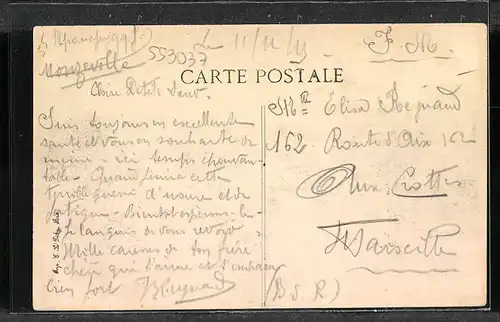 Monzeville
Le 11/12/15
F. M.
553037
CARTE POSTALE
Chère Petite Sœur.
Suis toujours en excellente
santé et vous en souhaite de
même - ici temps épouvan-
table. Quand finira cette
terrible guerre d'usure et de
fatigue. Bientôt espérons-le
Je languis de vous revoir
Mille caresses de ton frère
chéri qui t'aime et t'embrasse
bien fort
Mlle Elisa Reynaud
162 Route d'Aix 162
Aux Crottes
Marseille
(B d R)